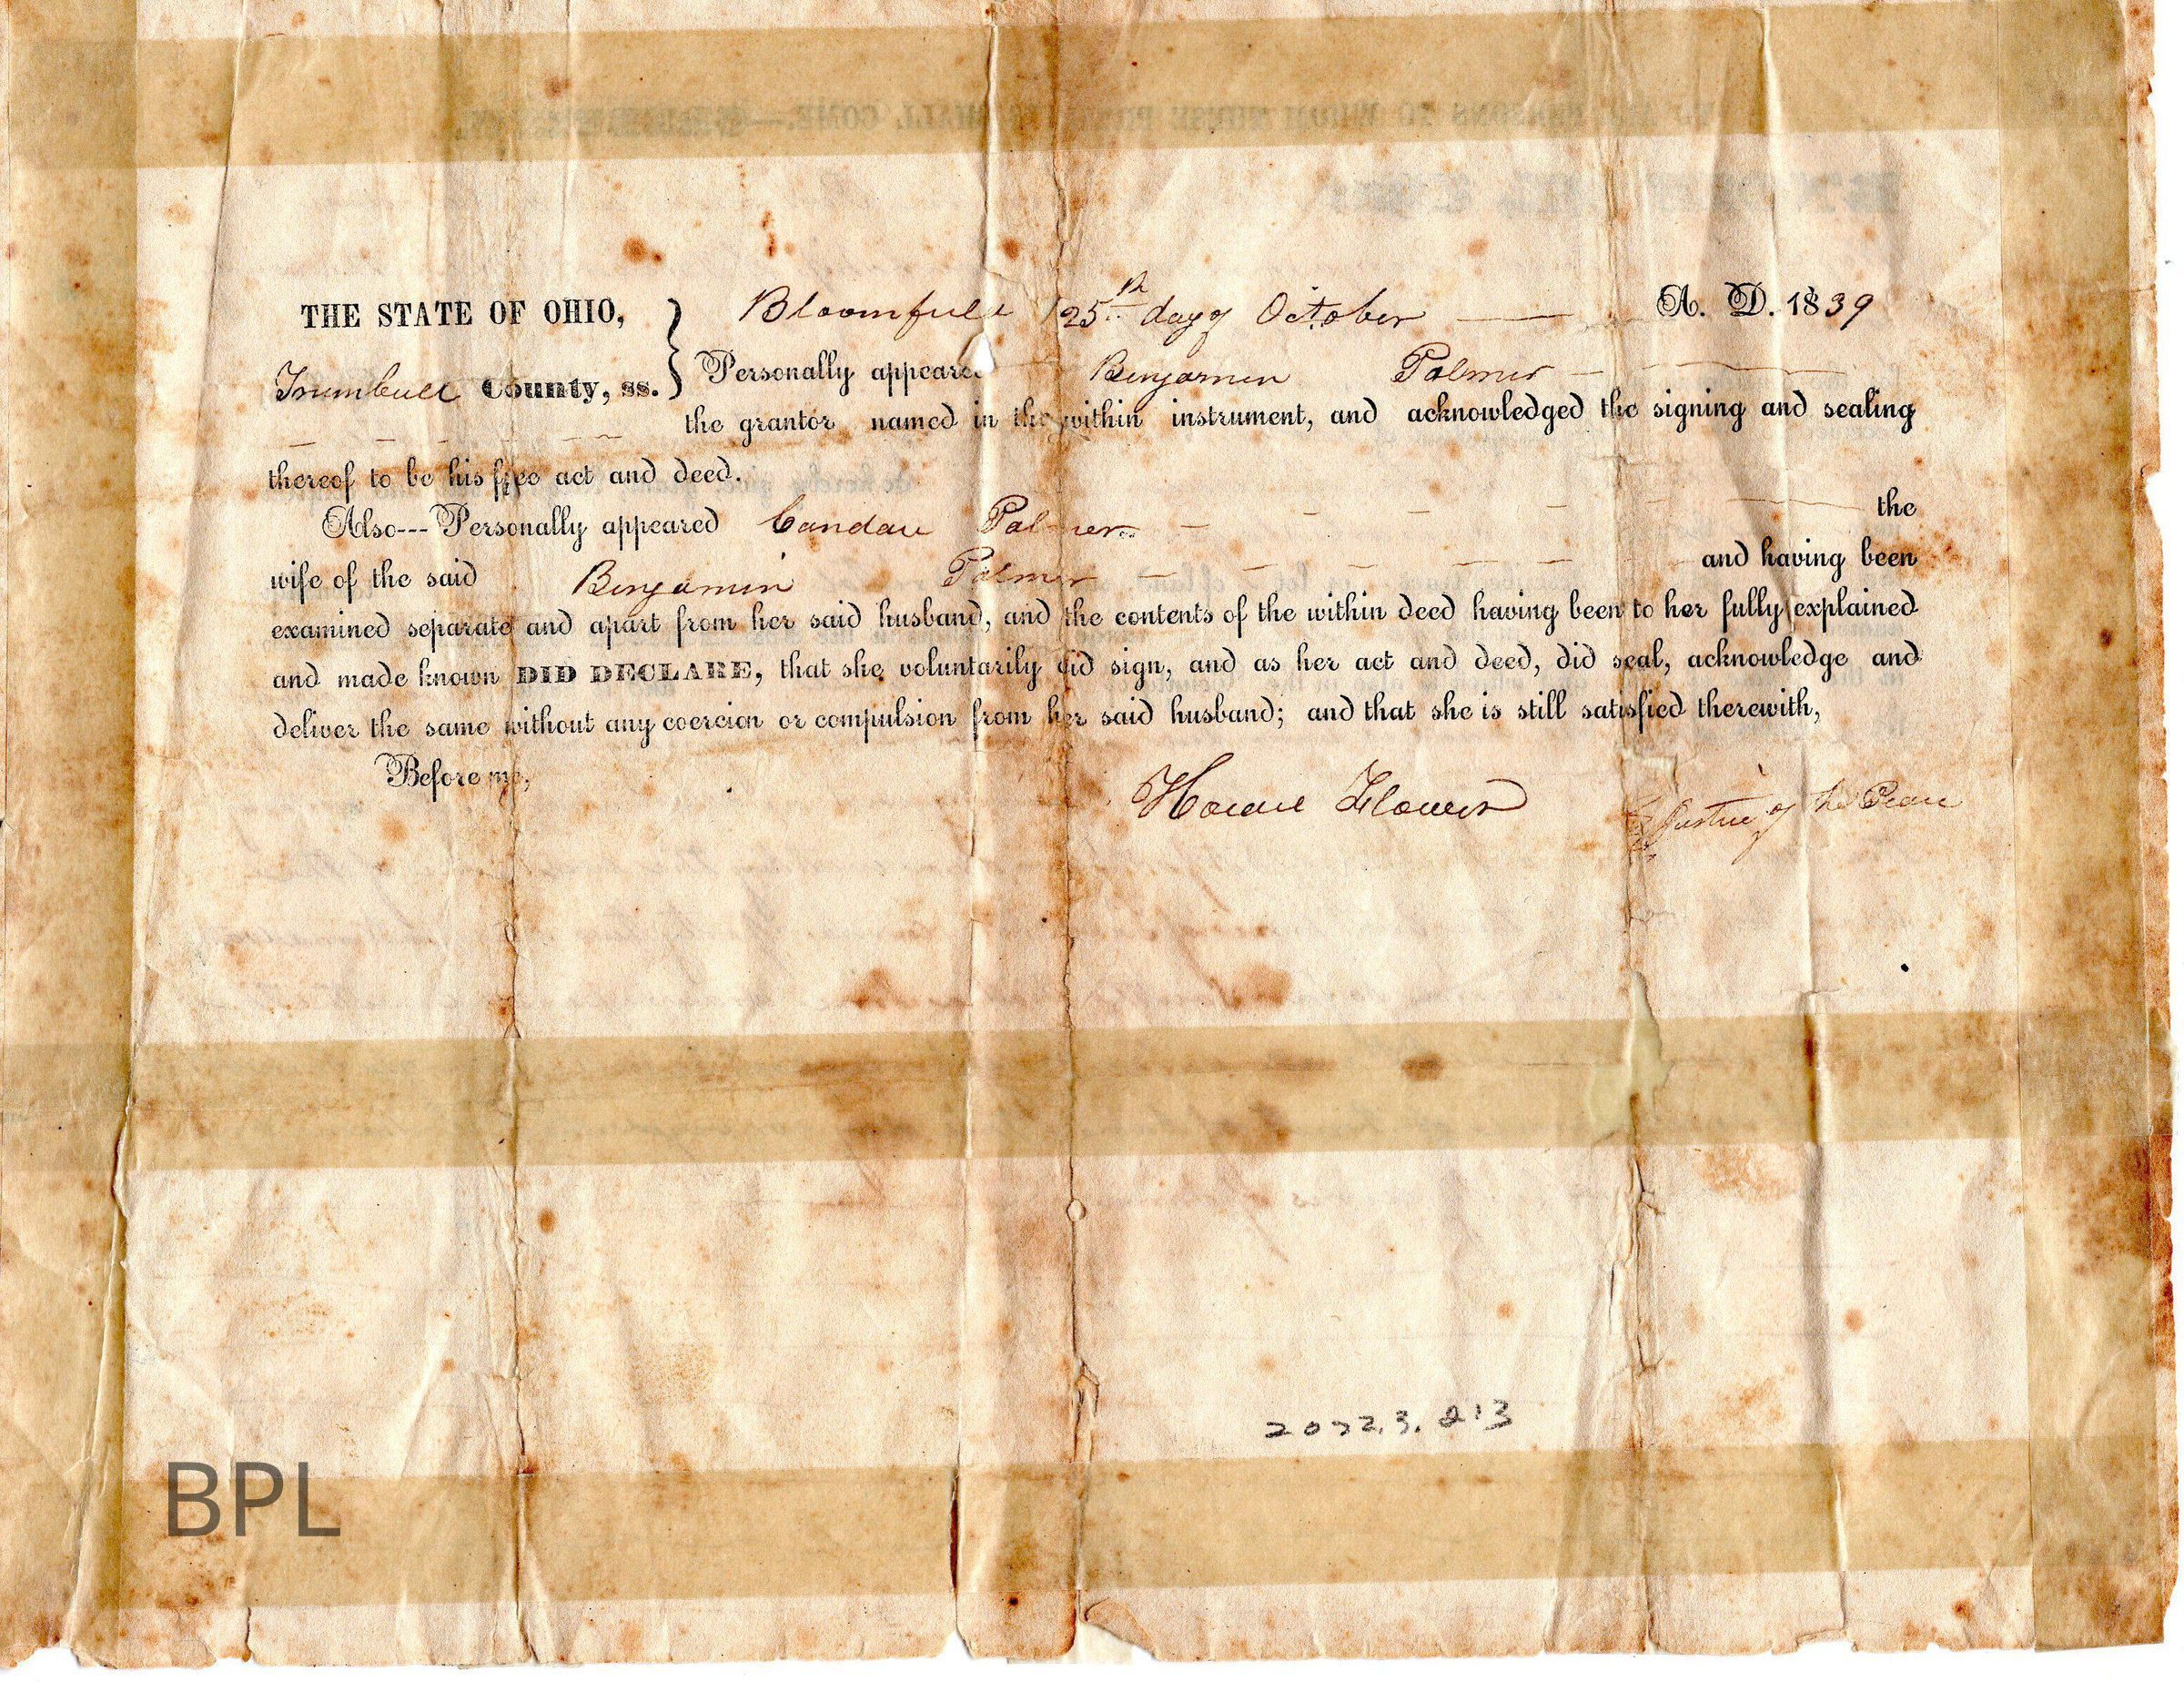 THE STATE OF OHIO, Bloomfield 25th day of October A. D. 1839
Trumbull County, ss. Personally appeared Benjamin Palmer
the grantor named in the within instrument, and acknowledged the signing and sealing
thereof to be his free act and deed.
Also---Personally appeared Candace Palmer the
wife of the said Benjamin Palmer and having been
examined separate and apart from her said husband, and the contents of the within deed having been to her fully explained
and made known DID DECLARE, that she voluntarily did sign, and as her act and deed, did seal, acknowledge and
deliver the same without any coercion or compulsion from her said husband; and that she is still satisfied therewith,
Before me,
Horace Flower Justice of the Peace
2022.3.213
BPL